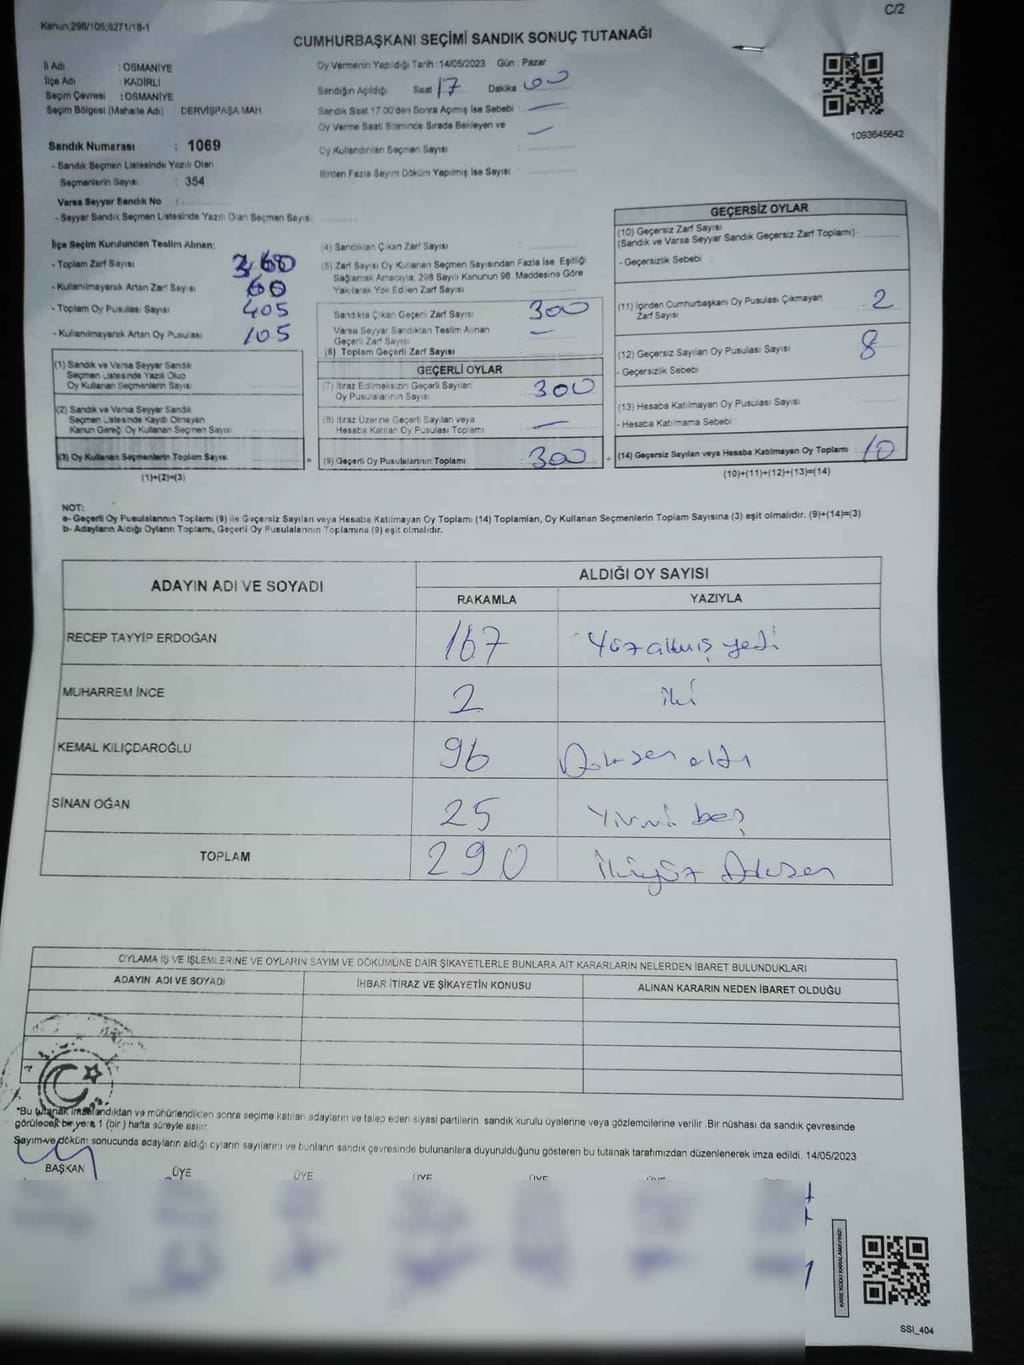 Kanun;298/105;6271/18-1
C/2
CUMHURBAŞKANI SEÇİMİ SANDIK SONUÇ TUTANAĞI
İl Adı : OSMANİYE
İlçe Adı : KADİRLİ
Seçim Çevresi : OSMANİYE
Seçim Bölgesi (Mahalle Adı) DERVİŞPAŞA MAH
Sandık Numarası : 1069
- Sandık Seçmen Listesinde Yazılı Olan
Seçmenlerin Sayısı : 354
Varsa Seyyar Sandık No :
- Seyyar Sandık Seçmen Listesinde Yazılı Olan Seçmen Sayısı
Oy Vermenin Yapıldığı Tarih :14/05/2023 Gün : Pazar
Sandığın Açıldığı Saat 17 Dakika 00
Sandık Saat 17:00'den Sonra Açımış İse Sebebi : —
Oy Verme Saati Bitiminde Sırada Bekleyen ve —
Oy Kullandırılan Seçmen Sayısı
Birden Fazla Sayım Döküm Yapılmış İse Sayısı
1093645642
İlçe Seçim Kurulundan Teslim Alınan:
- Toplam Zarf Sayısı 360
- Kullanılmayarak Artan Zarf Sayısı 60
- Toplam Oy Pusulası Sayısı 405
- Kullanılmayarak Artan Oy Pusulası 105
(1) Sandık ve Varsa Seyyar Sandık
Seçmen Listesinde Yazılı Olup
Oy Kullanan Seçmenlerin Sayısı
(2) Sandık ve Varsa Seyyar Sandık
Seçmen Listesinde Kayıtlı Olmayan
Kanun Gereği Oy Kullanan Seçmen Sayısı
(3) Oy Kullanan Seçmenlerin Toplam Sayısı
(1)+(2)=(3)
(4) Sandıktan Çıkan Zarf Sayısı
(5) Zarf Sayısı Oy Kullanan Seçmen Sayısından Fazla İse, Eşitliği
Sağlamak Amacıyla, 298 Sayılı Kanunun 98. Maddesine Göre
Yakılarak Yok Edilen Zarf Sayısı
Sandıkta Çıkan Geçerli Zarf Sayısı 300
Varsa Seyyar Sandıktan Teslim Alınan —
Geçerli Zarf Sayısı
(6) Toplam Geçerli Zarf Sayısı
GEÇERLİ OYLAR
(7) İtiraz Edilmeksizin Geçerli Sayılan
Oy Pusulalarının Sayısı 300
(8) İtiraz Üzerine Geçerli Sayılan veya
Hesaba Katılan Oy Pusulası Toplamı —
= (9) Geçerli Oy Pusulalarının Toplamı 300 +
GEÇERSİZ OYLAR
(10) Geçersiz Zarf Sayısı
(Sandık ve Varsa Seyyar Sandık Geçersiz Zarf Toplamı)
- Geçersizlik Sebebi :
(11) İçinden Cumhurbaşkanı Oy Pusulası Çıkmayan
Zarf Sayısı 2
(12) Geçersiz Sayılan Oy Pusulası Sayısı 8
- Geçersizlik Sebebi :
(13) Hesaba Katılmayan Oy Pusulası Sayısı
- Hesaba Katılmama Sebebi :
(14) Geçersiz Sayılan veya Hesaba Katılmayan Oy Toplamı : 10
(10)+(11)+(12)+(13)=(14)
NOT:
a- Geçerli Oy Pusulalarının Toplamı (9) ile Geçersiz Sayılan veya Hesaba Katılmayan Oy Toplamı (14) Toplamları, Oy Kullanan Seçmenlerin Toplam Sayısına (3) eşit olmalıdır. (9)+(14)=(3)
b- Adayların Aldığı Oyların Toplamı, Geçerli Oy Pusulalarının Toplamına (9) eşit olmalıdır.
ADAYIN ADI VE SOYADI
ALDIĞI OY SAYISI
RAKAMLA YAZIYLA
RECEP TAYYİP ERDOĞAN 167 Yüzaltmış yedi
MUHARREM İNCE 2 iki
KEMAL KILIÇDAROĞLU 96 Doksan altı
SİNAN OĞAN 25 Yirmi beş
TOPLAM 290 İkiyüz Doksan
OYLAMA İŞ VE İŞLEMLERİNE VE OYLARIN SAYIM VE DÖKÜMÜNE DAİR ŞİKAYETLERLE BUNLARA AİT KARARLARIN NELERDEN İBARET BULUNDUKLARI
ADAYIN ADI VE SOYADI İHBAR İTİRAZ VE ŞİKAYETİN KONUSU ALINAN KARARIN NEDEN İBARET OLDUĞU
*Bu tutanak imzalandıktan ve mühürlendikten sonra seçime katılan adayların ve talep eden siyasi partilerin sandık kurulu üyelerine veya gözlemcilerine verilir .Bir nüshası da sandık çevresinde
görülecek bir yere 1 (bir) hafta süreyle asılır.
Sayım ve döküm sonucunda adayların aldığı oyların sayılarını ve bunların sandık çevresinde bulunanlara duyurulduğunu gösteren bu tutanak tarafımızdan düzenlenerek imza edildi. 14/05/2023
BAŞKAN ÜYE ÜYE ÜYE ÜYE ÜYE
KARE KODU KARALAMAYINIZ!
SSİ_404